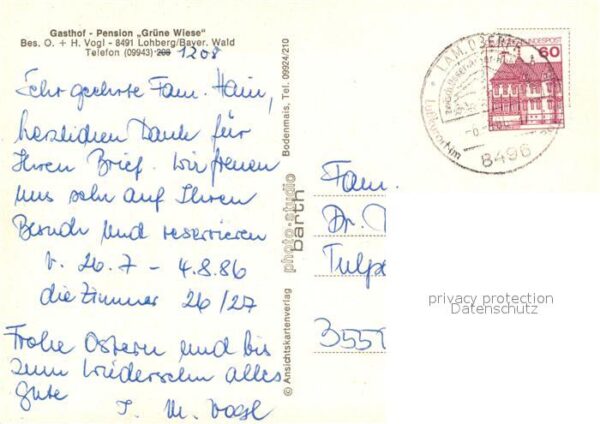 Gasthof - Pension „Grüne Wiese"
Bes. O. + H. Vogl - 8491 Lohberg/Bayer. Wald
Telefon (09943) 208 1208
Sehr geehrte Fam. Hain,
herzlichen Dank für
Ihren Brief. Wir freuen
uns sehr auf Ihren
Besuch und reservieren
v. 26.7 - 4.8.86
die Zimmer 26/27
Frohe Ostern und bis
zum Wiedersehn alles
gute
I. M. Vogl
© Ansichtskartenverlag photo-studio barth Bodenmais, Tel. 09924/210
BUNDESPOST
60
LAM, OBERPF
Luftkurort im
8496
Fam.
Dr.
Tulpe
3555
privacy protection
Datenschutz